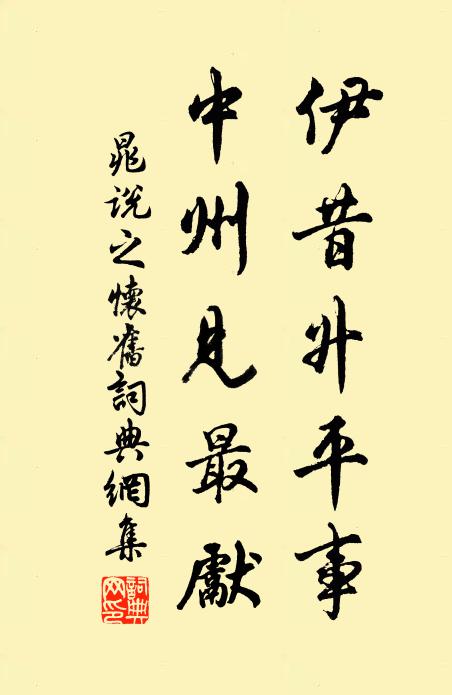 伊昔升平事
中州見最獻
晁說之懷舊詞典網集
詞典網印